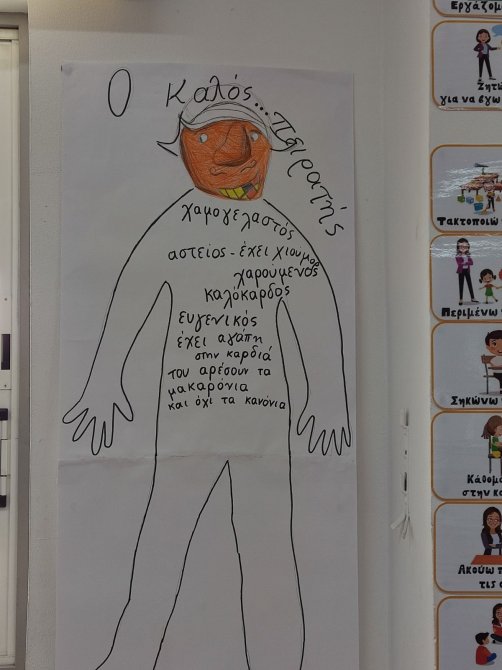 Ο Καλός... πειρατής
χαμογελαστός
αστείος - έχει χιούμορ
χαρούμενος
καλόκαρδος
ευγενικός
έχει αγάπη
στην καρδιά
του αρέσουν τα
μακαρόνια
και όχι τα κανόνια
Ζητώ
για να έχω
Τακτοποιώ
Περιμένω
Σηκώνω
στην
Ακούω
τις